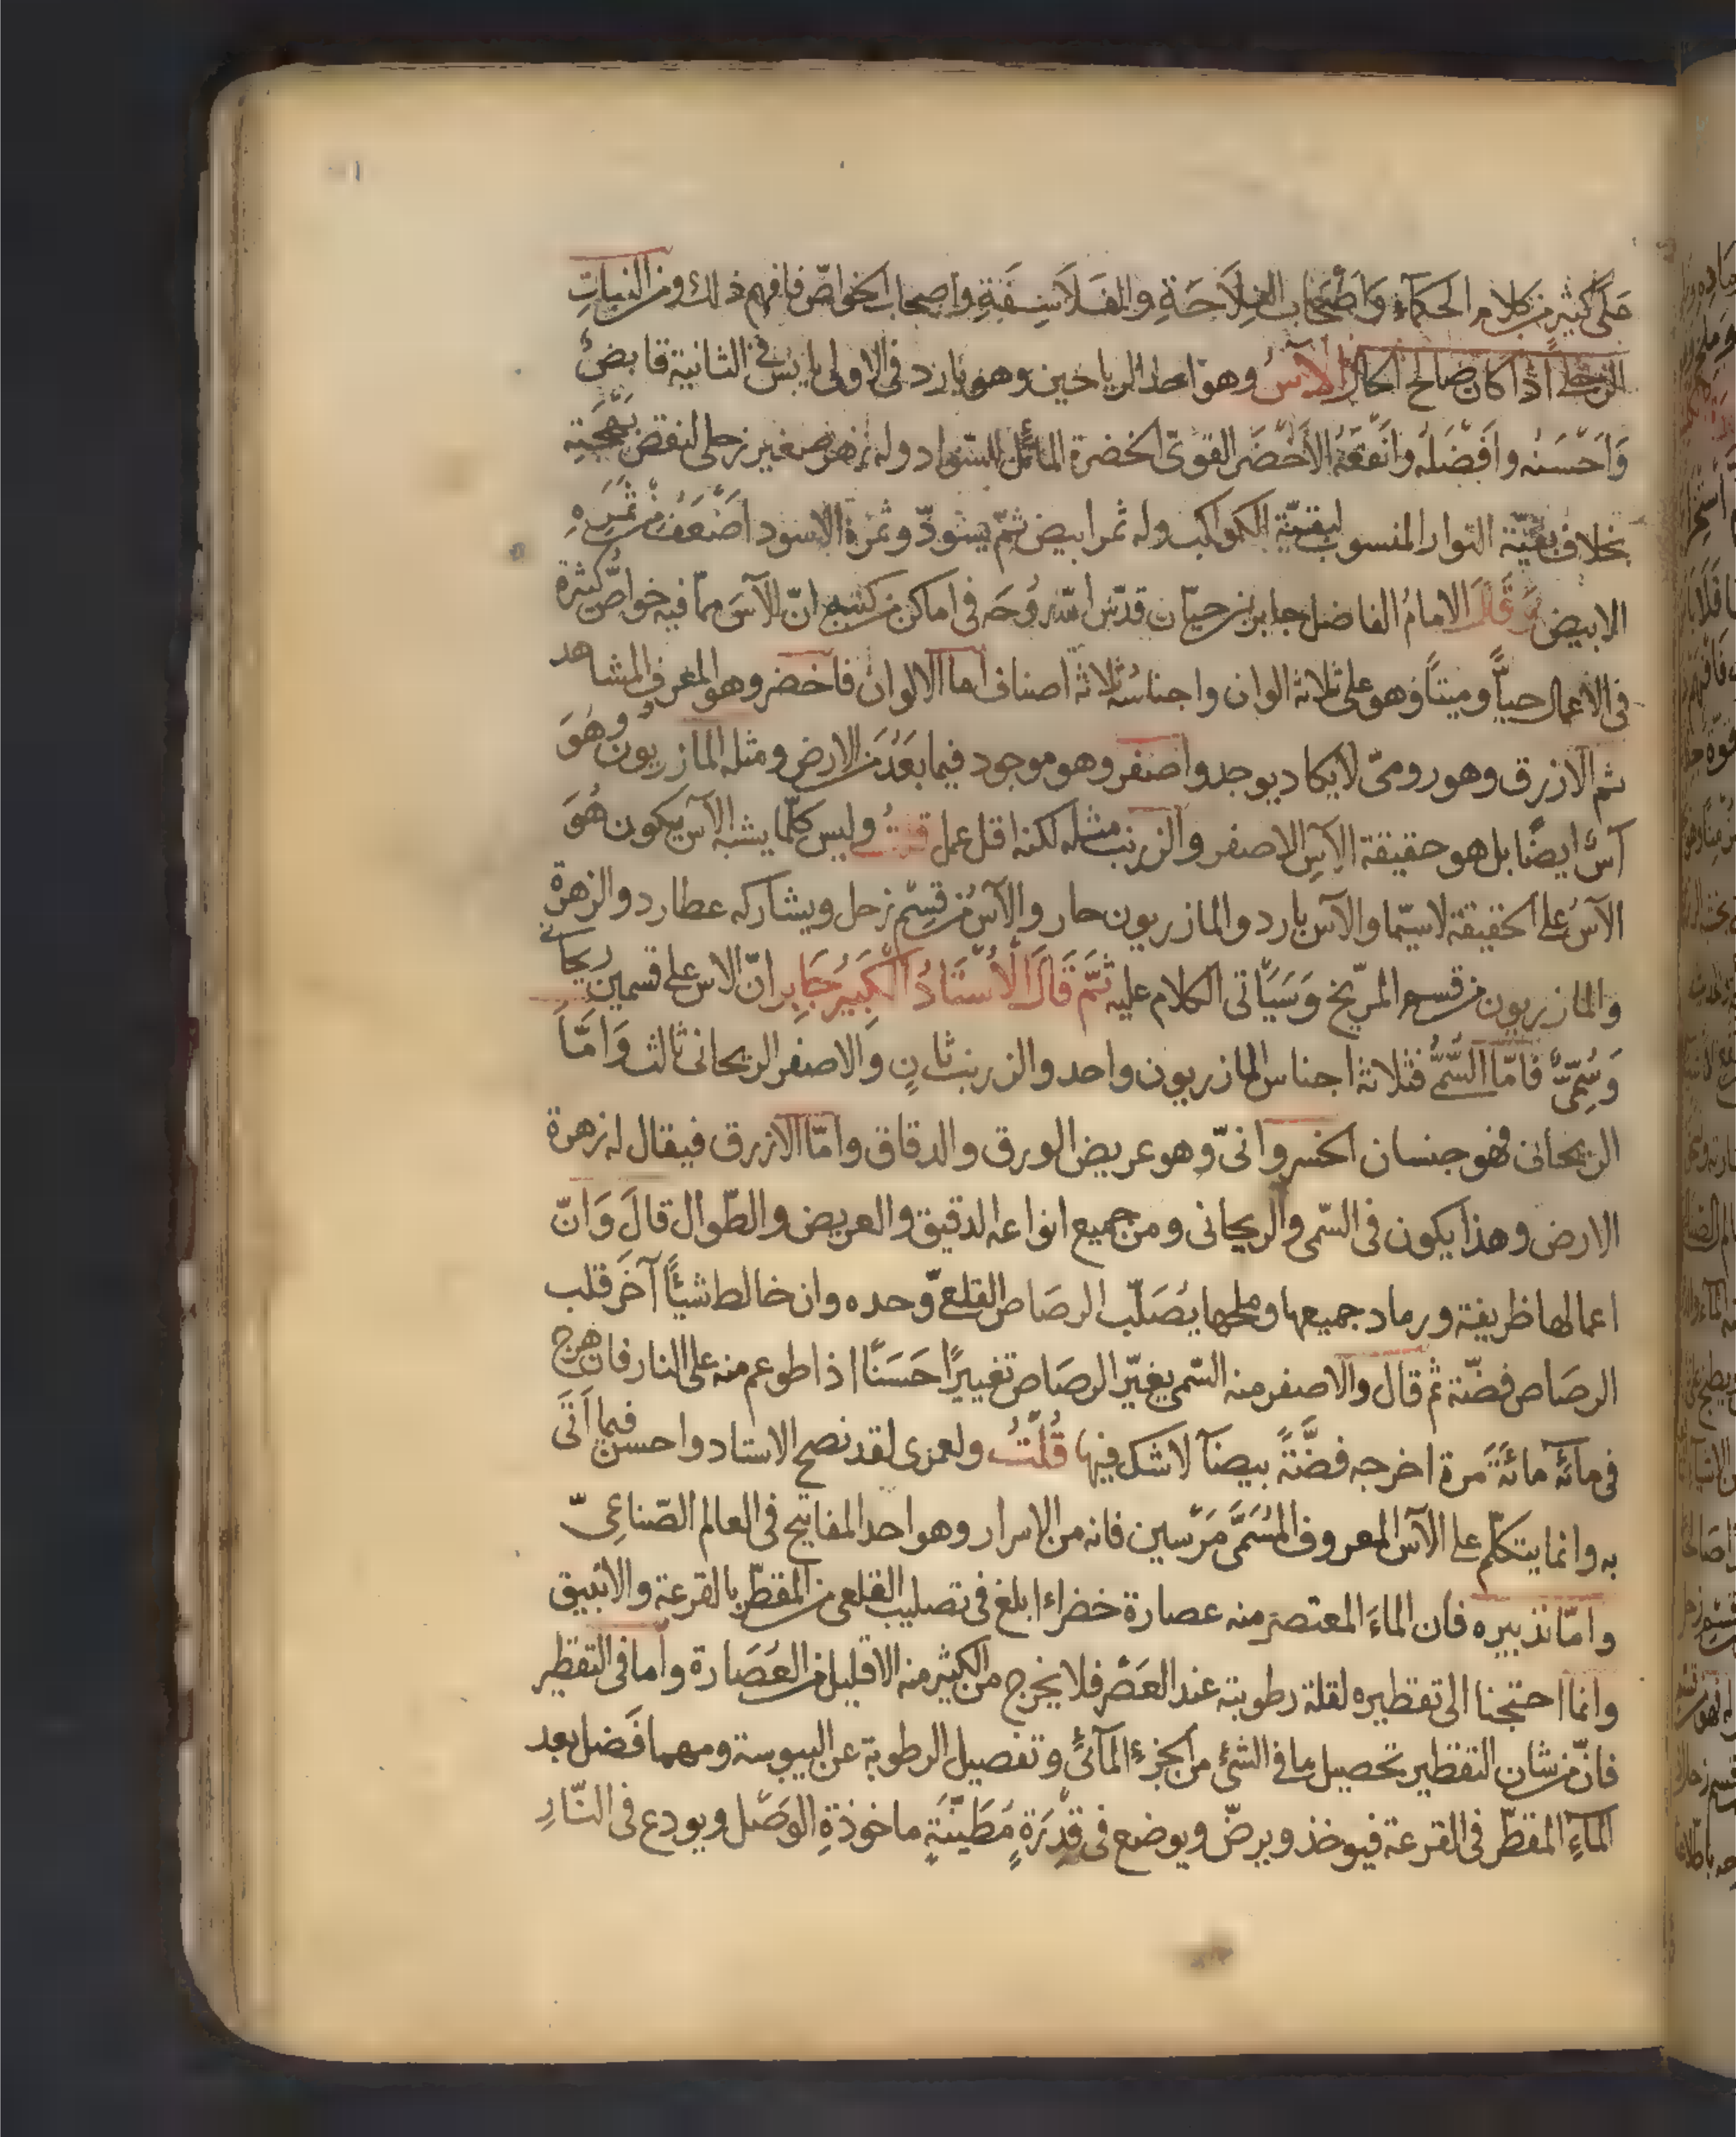 حَلَّ كثير من كلام الحكمآء وَاَصْحَاب الفِلَاحَةِ والفَلَاسِفَةِ واصحاب الخواصّ فافهم ذلك ومن النباتِ
الزحلى اذا كان صالح الحال الآسُ وهو احد الرياحين وهو بارد فى الاولى يابس فى الثانية قابضٌ
وَاَحْسَنُه وافْضَلُه وانْفَعُهُ الاَخْضَر القوىّ الخضرة المائل للسّواد وله زهر صغير زحلى لنقض بَهْجَتِه
بخلاف بقيّة النوار المنسوب لبقيّة الكواكب وله ثمر ابيض ثمّ يسْودّ وثمرة الاسود اضْعَفُ من ثمَرِه
الابيض قَالَ الامامُ الفاضل جابر بن حيّان قدّس اللّه رُوحَه فى اماكن من كتبه انّ الآسَ ممّا فيه خواصُّ كثيرة
فى الاعمال حيًّا وميتاً وهو على ثلاثة الوان واجناسُه ثلاثة اصناف اما الالوان فاخضر وهو المعروف المشاهد
ثم الازرق وهو رومىّ لا يكاد يوجد واصفر وهو موجود فيما بَعُدَ من الارض ومثله المازريون وهُوَ
آسٌ ايضًا بل هو حقيقة الآسِ الاصفر والزرنب مثله لكنه اقل عمل قلتُ وليس كلّما يشبه الآس يكون هُوَ
الآسُ على الحقيقة لاسيّما والآس بارد والمازريون حار والآسُ من قِسْمِ زحل ويشاركه عطارد والزهرة
والمازريون من قسم المرّيخ وَسَيَأتى الكلام عليه ثمَّ قَالَ الْاُسْتَادُ الْكَبِيرُ جَابِر انّ الاس على قسمين ريحانى
وَسُمِّىٌّ فامّا السُّمىُّ فثلاثة اجناس المازريون واحد والزرنب ثانٍ وَالاصفر الريحانى ثالث وَامَّا
الريحانى فهو جنسان الخسروانىّ وهو عريض الورق والدقاق وامّا الازرق فيقال له زهرة
الارض وهذا يكون فى السّمى والريحانى ومن جميع انواعه الدقيق والعريض والطّوال قالَ وَانّ
اعمالها ظريفة ورماد جميعها وملحها يُصَلّب الرصَاص القلعىّ وحده وان خالط شيئًا آخَر قلب
الرصَاص فضّة ثم قال والاصفر منه السّمى يغيّر الرصَاص تغييرًا حَسَنًا اذا طوعم منه على النار فان هرج
فى مائةٍ مائةَ مرة اخرجه فضَّةً بيضآ لاشك فيها قُلْتُ ولعمرى لقد نصح الاستاد واحسن فيما اَتَى
به وانما يتكلّم على الآس المعروف المُسَمَّى مَرْسين فانه من الاسرار وهو احد المفاتيح فى العالم الصّناعِىّ
وامّا تدبيره فان الماءَ المعتصر منه عصارة خضراء ابلغ فى تصليب القلعى من المقطّر بالقرعة والانبيق
وانما احتجنا الى تقطيره لقلة رطوبته عند العَصْر فلا يخرج من الكثير منه الا قليل من العُصَارة وأما فى التقطير
فانّ من شان التقطير تحصيل ما فى الشئ من الجزءِ المآئىّ وتفصيل الرطوبة عن اليبوسة ومهما فَضل بعد
المآءِ المقطّر فى القرعة فيوخذ ويرضّ ويوضع فى قِدْرَةٍ مُطَيّنَةٍ ماخوذةِ الوَصْل ويودع فى النّارِ